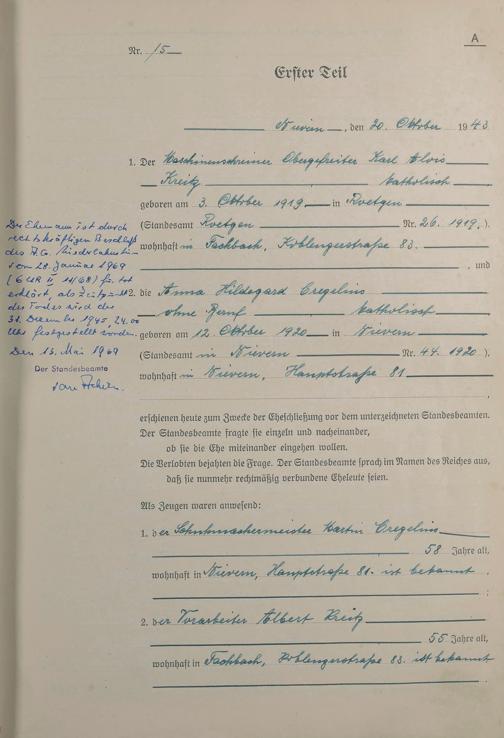 A
Nr. 15
Erster Teil
Nievern, den 20. Oktober 1943
1. Der Maschinenschreiner Obergefreiter Karl Alois
Kreitz katholisch
geboren am 3. Oktober 1919 in Roetgen
(Standesamt Roetgen Nr. 26. 1919.)
wohnhaft in Fachbach, Koblenzerstraße 83.
, und
2. die Anna Hildegard Cregelius
ohne Beruf katholisch
geboren am 12. Oktober 1920 in Nievern
(Standesamt in Nievern Nr. 44. 1920)
wohnhaft in Nievern, Hauptstraße 81
Der Ehemann ist durch
rechtskräftigen Beschluß
des A.G.
vom 28. Januar 1969
für tot
erklärt, als Zeitpunkt
des Todes wird der
31. Dezember 1945, 24.00
Uhr festgestellt worden.
Den 13. Mai 1969
Der Standesbeamte
erschienen heute zum Zwecke der Eheschließung vor dem unterzeichneten Standesbeamten.
Der Standesbeamte fragte sie einzeln und nacheinander,
ob sie die Ehe miteinander eingehen wollen.
Die Verlobten bejahten die Frage. Der Standesbeamte sprach im Namen des Reiches aus,
daß sie nunmehr rechtmäßig verbundene Eheleute seien.
Als Zeugen waren anwesend:
1. der Schuhmachermeister Martin Cregelius
58 Jahre alt,
wohnhaft in Nievern, Hauptstraße 81. ist bekannt
;
2. der Vorarbeiter Albert Kreitz
55 Jahre alt,
wohnhaft in Fachbach, Koblenzerstraße 83. ist bekannt